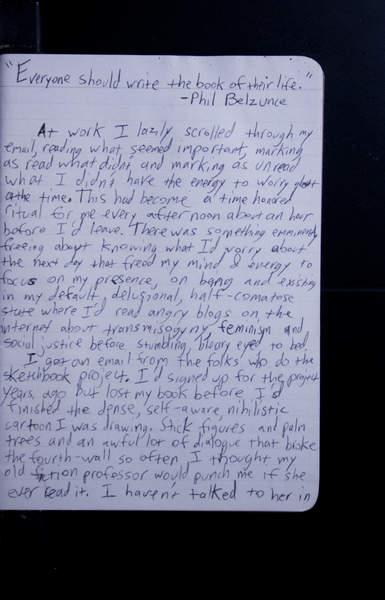 "Everyone should write the book of their life."
-Phil Belzunce
At work I lazily scrolled through my
email, reading what seemed important, marking
as read what didn't and marking as unread
what I didn't have the energy to worry about
at the time. This had become a time honored
ritual for me every afternoon about an hour
before I'd leave. There was something eminently
freeing about knowing what I'd worry about
the next day that freed my mind & energy to
focus on my presence, on being and existing
in my default, delusional, half-comatose
state where I'd read angry blogs on the
internet about transmisogyny, feminism and
social justice before stumbling, bleary eyed to bed.
I got an email from the folks who do the
sketchbook project. I'd signed up for the project
years, ago but lost my book before I'd
finished the dense, self-aware, nihilistic
cartoon I was drawing. Stick figures and palm
trees and an awful lot of dialogue that broke
the fourth-wall so often, I thought my
old fiction professor would punch me if she
ever read it. I haven't talked to her in